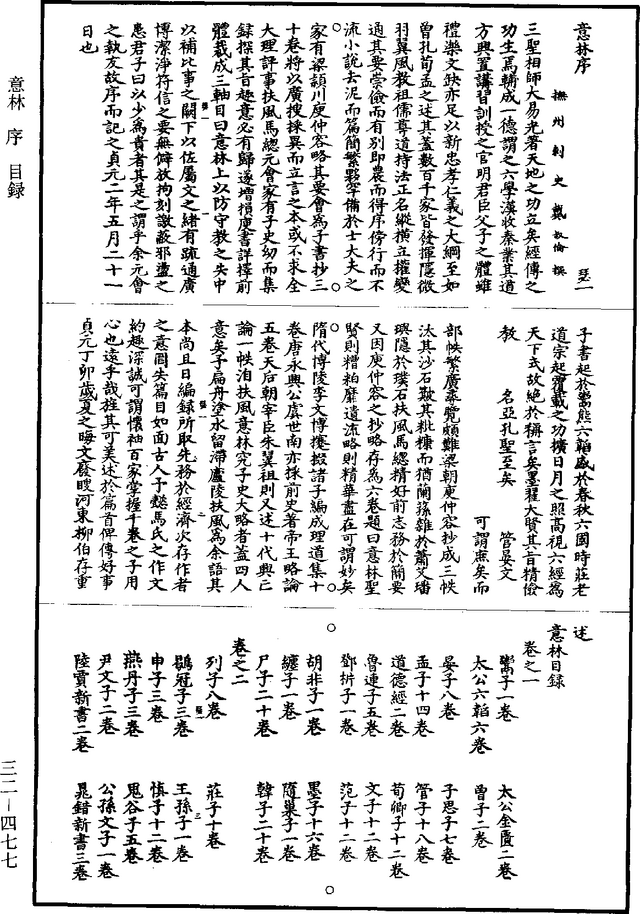 意林 序 目録
三二-四七七
意林序
撫州刺史戴叔倫撰
三聖相師大易光著天地之功立矣經傳之
功生焉輔成一德謂之六學漢收秦業其道
方興置講習訓授之官明君臣父子之體雖
禮樂文缺亦足以新忠孝仁義之大綱至如
曾孔荀孟之述其蓋數百千家皆發揮隱微
羽翼風教祖儒尊道持法正名縱横立權變
通其要崇儉而有別即農而得序傍行而不
流小説去泥而篇簡繁夥罕備於士大夫之
家有梁潁川庾仲容略其要會爲子書抄三
十卷將以廣搜採異而立言之本或不求全
大理評事扶風馬總元會家有子史幼而集
録探其旨趣意必有歸遂增損庾書詳擇前
體裁成三軸目曰意林上以防守教之失中
以補比事之闕下以佐屬文之緒有疏通廣
博潔淨符信之要無僻放拘刻譏蔽邪蕩之
患君子曰以少爲貴者其是之謂乎余元會
之執友故序而記之貞元二年五月二十一
日也
子書起於鬻熊六韜盛於春秋六國時莊老
道宗起覆載之功擴日月之照高視六經爲
天下式故絶於稱言矣墨翟大賢其旨精儉
教 名亞孔聖至矣 管晏文 可謂庶矣而
部帙繁廣乘覽頗難梁朝庾仲容抄成三帙
汰其沙石簸其粃糠而猶蘭蓀雜於蕭艾璠
璵隱於璞石扶風馬總精好前志務於簡要
又因庾仲容之抄略存爲六卷題曰意林聖
賢則糟粕靡遺流略則精華盡在可謂妙矣
隋代博陵李文博攓掇諸子編成理道集十
卷唐永興公虞世南亦採前史著帝王略論
五卷天后朝宰臣朱翼祖則又述十代興亡
論一帙洎扶風意林究子史大略者蓋四人
意矣予扁舟塗水留滯廬陵扶風爲余語其
本尚且曰編録所取先務於經濟次存作者
之意罔失篇目如面古人予懿馬氏之作文
約趣深誠可謂懷袖百家掌握千卷之子用
心也遠乎哉旌其可美述於篇首俾傳好事
貞元丁卯歲夏之晦文廢瞍河東柳伯存重
述
意林目録
卷之一
鬻子一卷 太公金匱二卷
太公六韜六卷 曾子二卷
晏子八卷 子思子七卷
孟子十四卷 管子十八卷
道德經二卷 荀卿子十二卷
魯連子五卷 文子十二卷
鄧析子一卷 范子十二卷
胡非子一卷 墨子十六卷
纏子一卷 隨巢子一卷
尸子二十卷 韓子二十卷
卷之二
列子八卷 莊子十卷
鶡冠子三卷 王孫子一卷
申子三卷 慎子十二卷
燕丹子三卷 鬼谷子五卷
尹文子二卷 公孫文子一卷
陸賈新書二卷 晁錯新書三卷